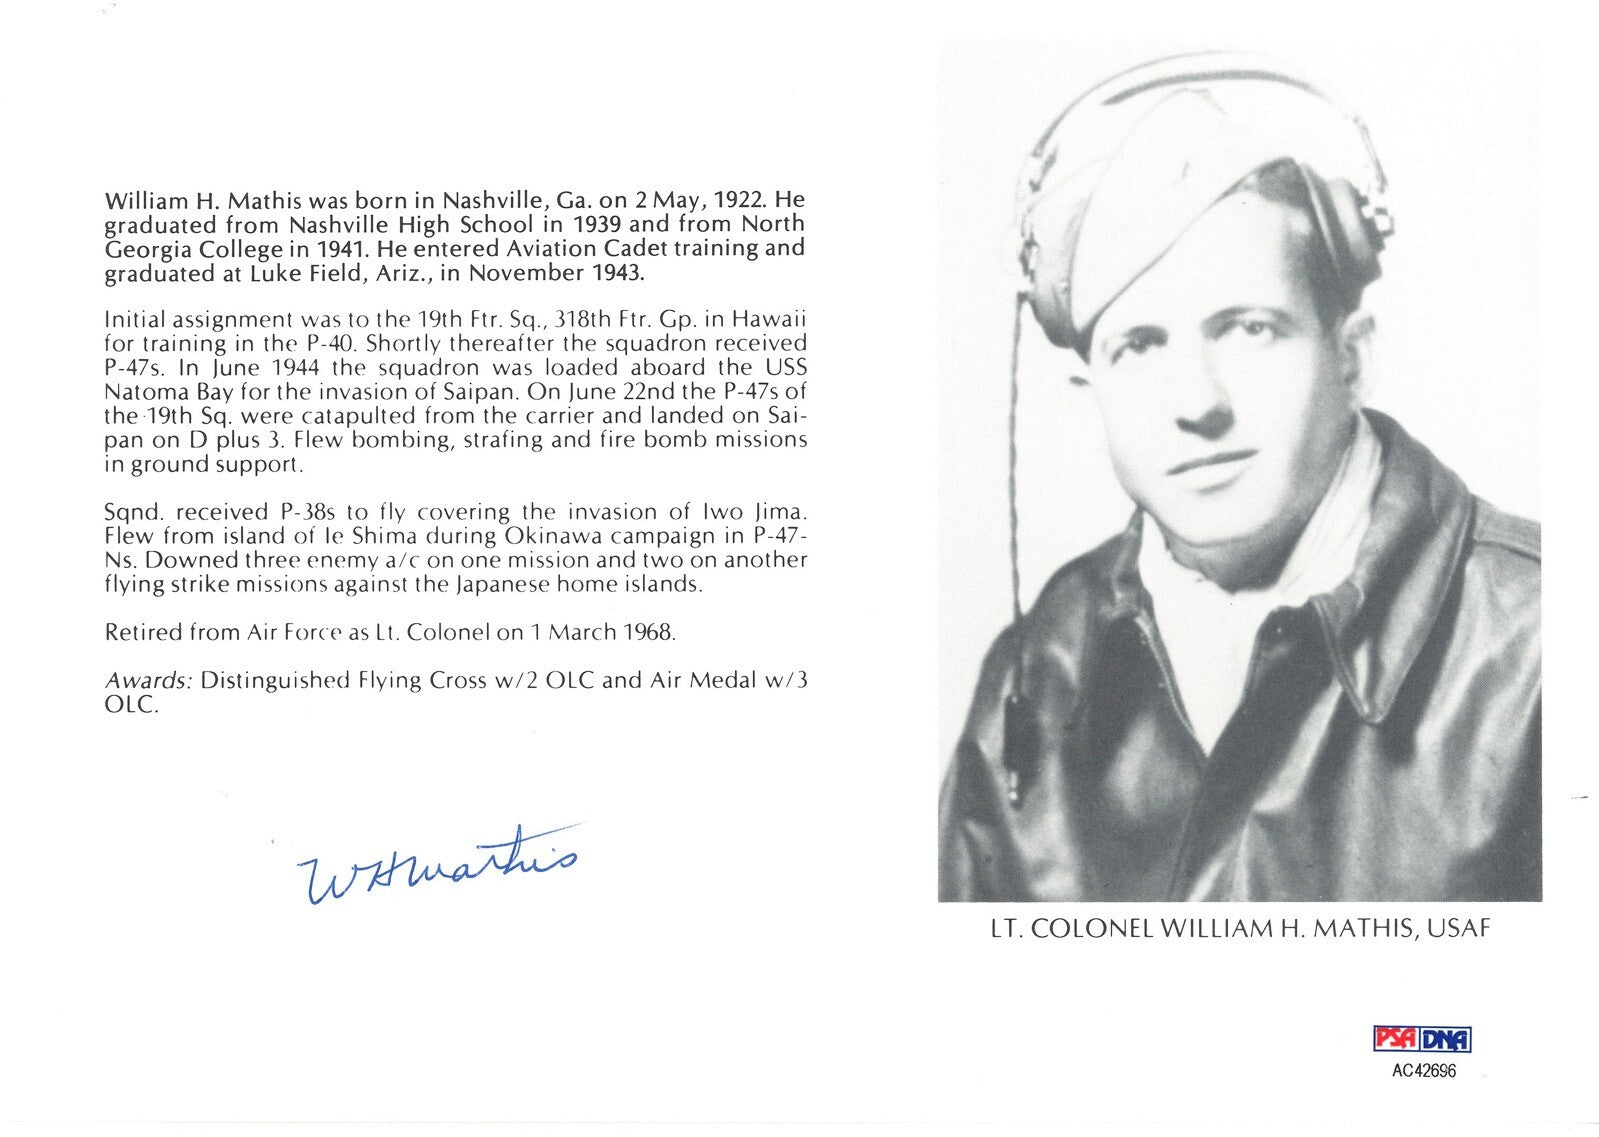 William H. Mathis was born in Nashville, Ga. on 2 May, 1922. He
graduated from Nashville High School in 1939 and from North
Georgia College in 1941. He entered Aviation Cadet training and
graduated at Luke Field, Ariz., in November 1943.
Initial assignment was to the 19th Ftr. Sq., 318th Ftr. Gp. in Hawaii
for training in the P-40. Shortly thereafter the squadron received
P-47s. In June 1944 the squadron was loaded aboard the USS
Natoma Bay for the invasion of Saipan. On June 22nd the P-47s of
the 19th Sq. were catapulted from the carrier and landed on Sai-
pan on D plus 3. Flew bombing, strafing and fire bomb missions
in ground support.
Sqnd. received P-38s to fly covering the invasion of Iwo Jima.
Flew from island of Ie Shima during Okinawa campaign in P-47-
Ns. Downed three enemy a/c on one mission and two on another
flying strike missions against the Japanese home islands.
Retired from Air Force as Lt. Colonel on 1 March 1968.
Awards: Distinguished Flying Cross w/2 OLC and Air Medal w/3
OLC.
WHMathis
LT. COLONEL WILLIAM H. MATHIS, USAF
PSA DNA
AC42696